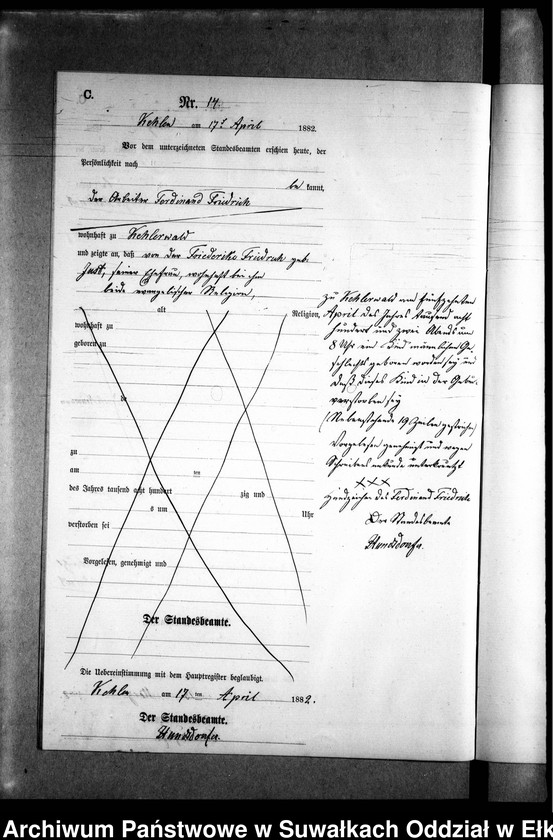 C.
Nr. 14.
Kehlen am 17t April 1882.
Vor dem unterzeichneten Standesbeamten erschien heute, der
Persönlichkeit nach
be kannt,
der Arbeiter Ferdinand Friedrich
wohnhaft zu Kehlerwald
und zeigte an, daß von der Friederike Friedrich geb.
Just, seiner Ehefrau, wohnhaft bei ihm
beide evangelischer Religion,
alt Religion,
wohnhaft zu
geboren zu
de
zu
am ten
des Jahres tausend acht hundert zig und
s um Uhr
verstorben sei
Vorgelesen, genehmigt und
Der Standesbeamte.
Die Uebereinstimmung mit dem Hauptregister beglaubigt.
Kehlen am 17 ten April 1882.
Der Standesbeamte.
zu Kehlerwald am fünfzehnten
April des Jahres tausend acht
hundert und zwei Abends um
8 Uhr ein Kind männlichen Ge-
schlechts geboren worden sei und
daß dieses Kind in der Geburt
verstorben sei
(Nebenstehende 19 Zeilen gestrichen)
Vorgelesen genehmigt und wegen
Schreibens unterkreuzt
XXX
Handzeichen des Ferdinand Friedrich
Der Standesbeamte
Archiwum Państwowe w Suwałkach Oddział w Ełk